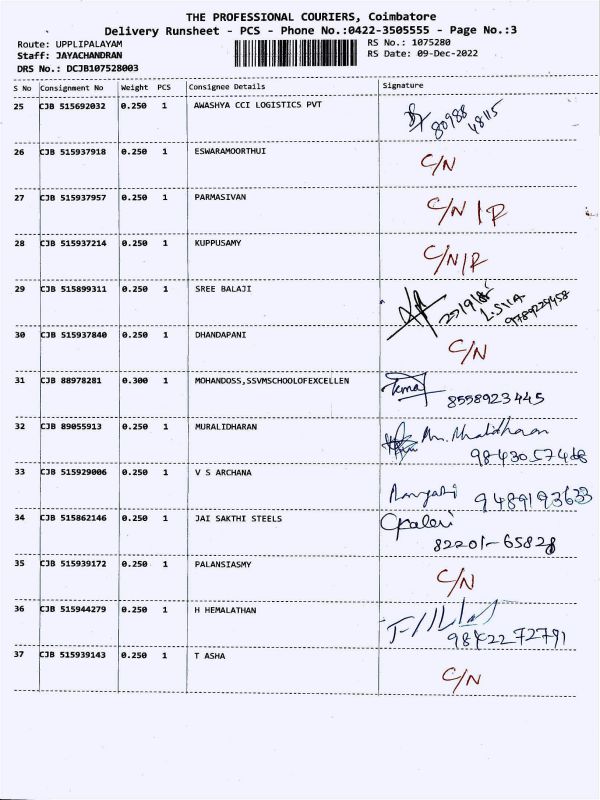 THE PROFESSIONAL COURIERS, Coimbatore
Delivery Runsheet - PCS - Phone No.:0422-3505555 - Page No.:3
Route: UPPLIPALAYAM
RS No.: 1075280
Staff: JAYACHANDRAN
RS Date: 09-Dec-2022
DRS No.: DCJB107528003
S No Consignment No Weight PCS Consignee Details Signature
25 CJB 515692032 0.250 1 AWASHYA CCI LOGISTICS PVT
80988
48115
26 CJB 515937918 0.250 1 ESWARAMOORTHUI C/N
27 CJB 515937957 0.250 1 PARMASIVAN C/N/R
28 CJB 515937214 0.250 1 KUPPUSAMY C/N/R
29 CJB 515899311 0.250 1 SREE BALAJI
9789229458
30 CJB 515937840 0.250 1 DHANDAPANI C/N
31 CJB 88978281 0.300 1 MOHANDOSS,SSVMSCHOOLOFEXCELLEN
8558923445
32 CJB 89055913 0.250 1 MURALIDHARAN
33 CJB 515929006 0.250 1 V S ARCHANA
9489193633
34 CJB 515862146 0.250 1 JAI SAKTHI STEELS
82201-65828
35 CJB 515939172 0.250 1 PALANSIASMY C/N
36 CJB 515944279 0.250 1 H HEMALATHAN
9842272791
37 CJB 515939143 0.250 1 T ASHA C/N